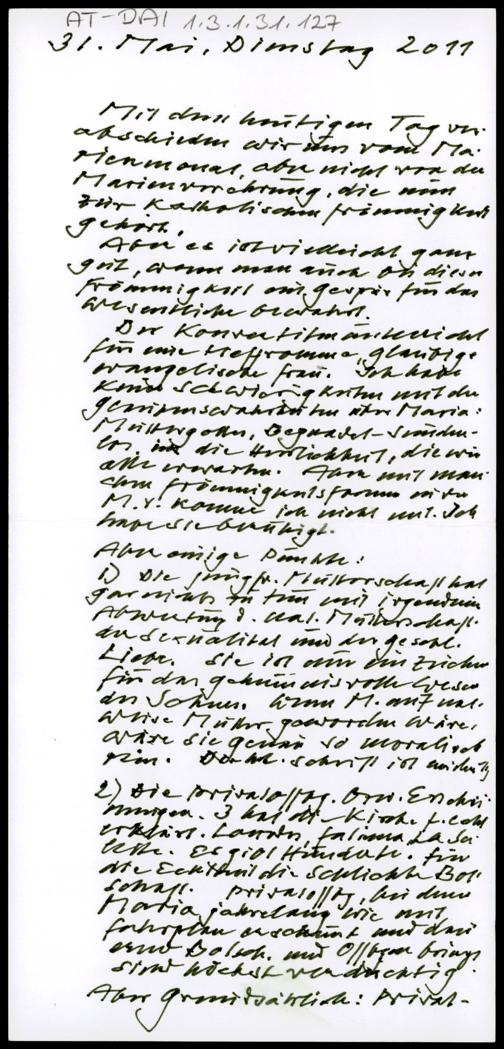 AT-DAI 1.3.1.31.127
31. Mai, Dienstag 2011
Mit dem heutigen Tag ver-
abschieden wir uns vom Ma-
rienmonat, aber nicht von der
Marienverehrung, die nun
zur katholischen Frömmigkeit
gehört.
Aber es ist vielleicht ganz
gut, wenn man auch bei dieser
Frömmigkeit ein Gespür für das
Wesentliche bewahrt.
Der Konvertitenunterricht
für eine tieffromme, gläubige
evangelische Frau. Ich habe
keine Schwierigkeiten mit den
Glaubenswahrheiten über Maria:
Muttergottes, Begnadet-Sünden-
los, die Herrlichkeit, die wir
alle erwarten. Aber mit man-
chen Frömmigkeitsformen
M.V. komme ich nicht mit. Ich
habe sie beruhigt.
Aber einige Punkte:
1) Die jungfr. Mutterschaft hat
gar nichts zu tun mit irgendeiner
Abwertung d. nat. Mutterschaft,
der Sexualität und der geschl.
Liebe. Sie ist nur ein Zeichen
für das geheimnisvolle Wesen
des Sohnes. Wenn M. auf nat.
Weise Mutter geworden wäre,
wäre sie genau so moralisch
rein. Die hl. Schrift ist eindeutig
2) Die Privatoffbg. bzw. Erschei-
nungen. 3 hat die Kirche f. echt
erklärt. Lourdes, Fatima, La Sa-
lette. Es gibt Hunderte. Für
die Echtheit die schlichte Bot-
schaft. Privatoffbg, bei denen
Maria jahrelang wie mit
Fahrplan erscheint und dau-
ernd Botsch. und Offbgen bringt
sind höchst verdächtig.
Aber grundsätzlich: Privat-